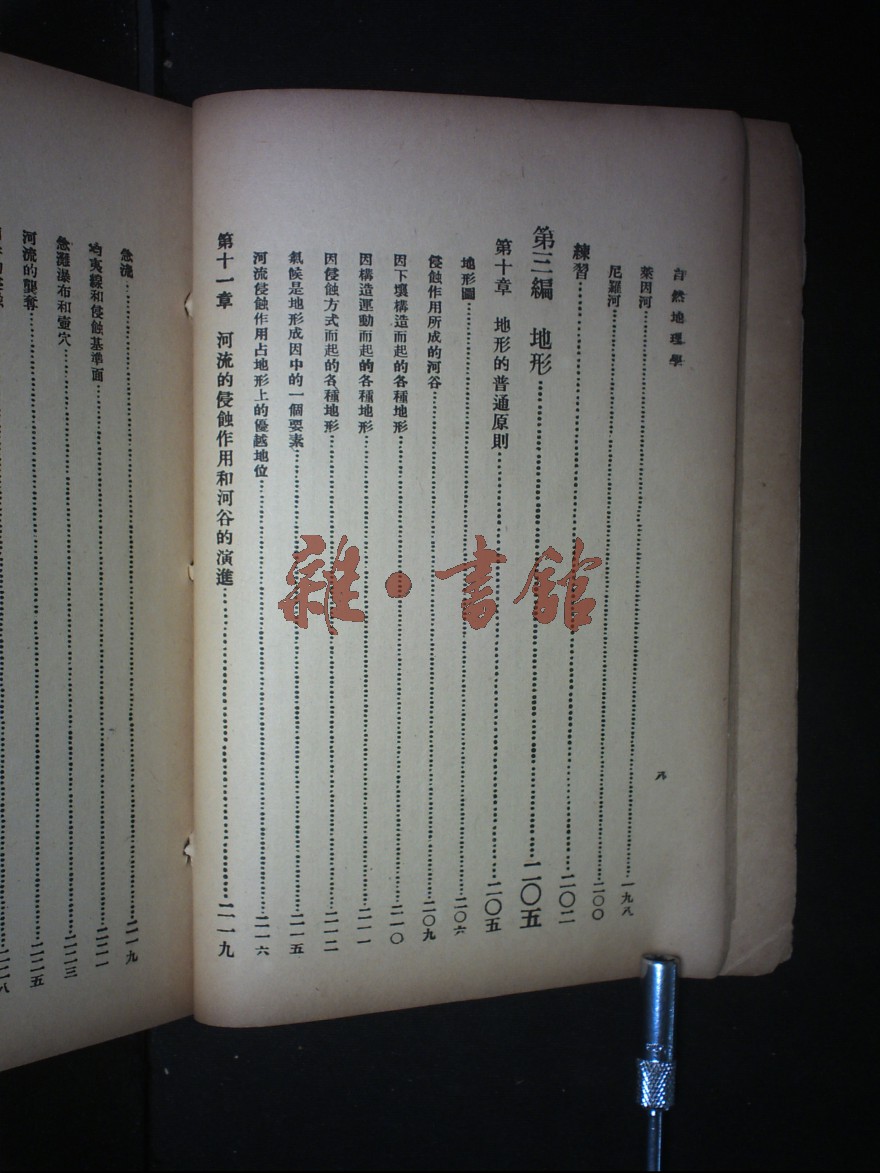 自然地理學
八
萊因河……一九八
尼羅河……二〇〇
練習……二〇二
第三編 地形……二〇五
第十章 地形的普通原則……二〇五
地形圖……二〇六
侵蝕作用所成的河谷……二〇九
因下壤構造而起的各種地形……二一〇
因構造運動而起的各種地形……二一一
因侵蝕方式而起的各種地形……二一二
氣候是地形成因中的一個要素……二一五
河流侵蝕作用占地形上的優越地位……二一六
第十一章 河流的侵蝕作用和河谷的演進……二一九
急流……二一九
均夷線和侵蝕基準面……二二一
急灘瀑布和壺穴……二二三
河流的襲奪……二二五
二二八
雜·書館